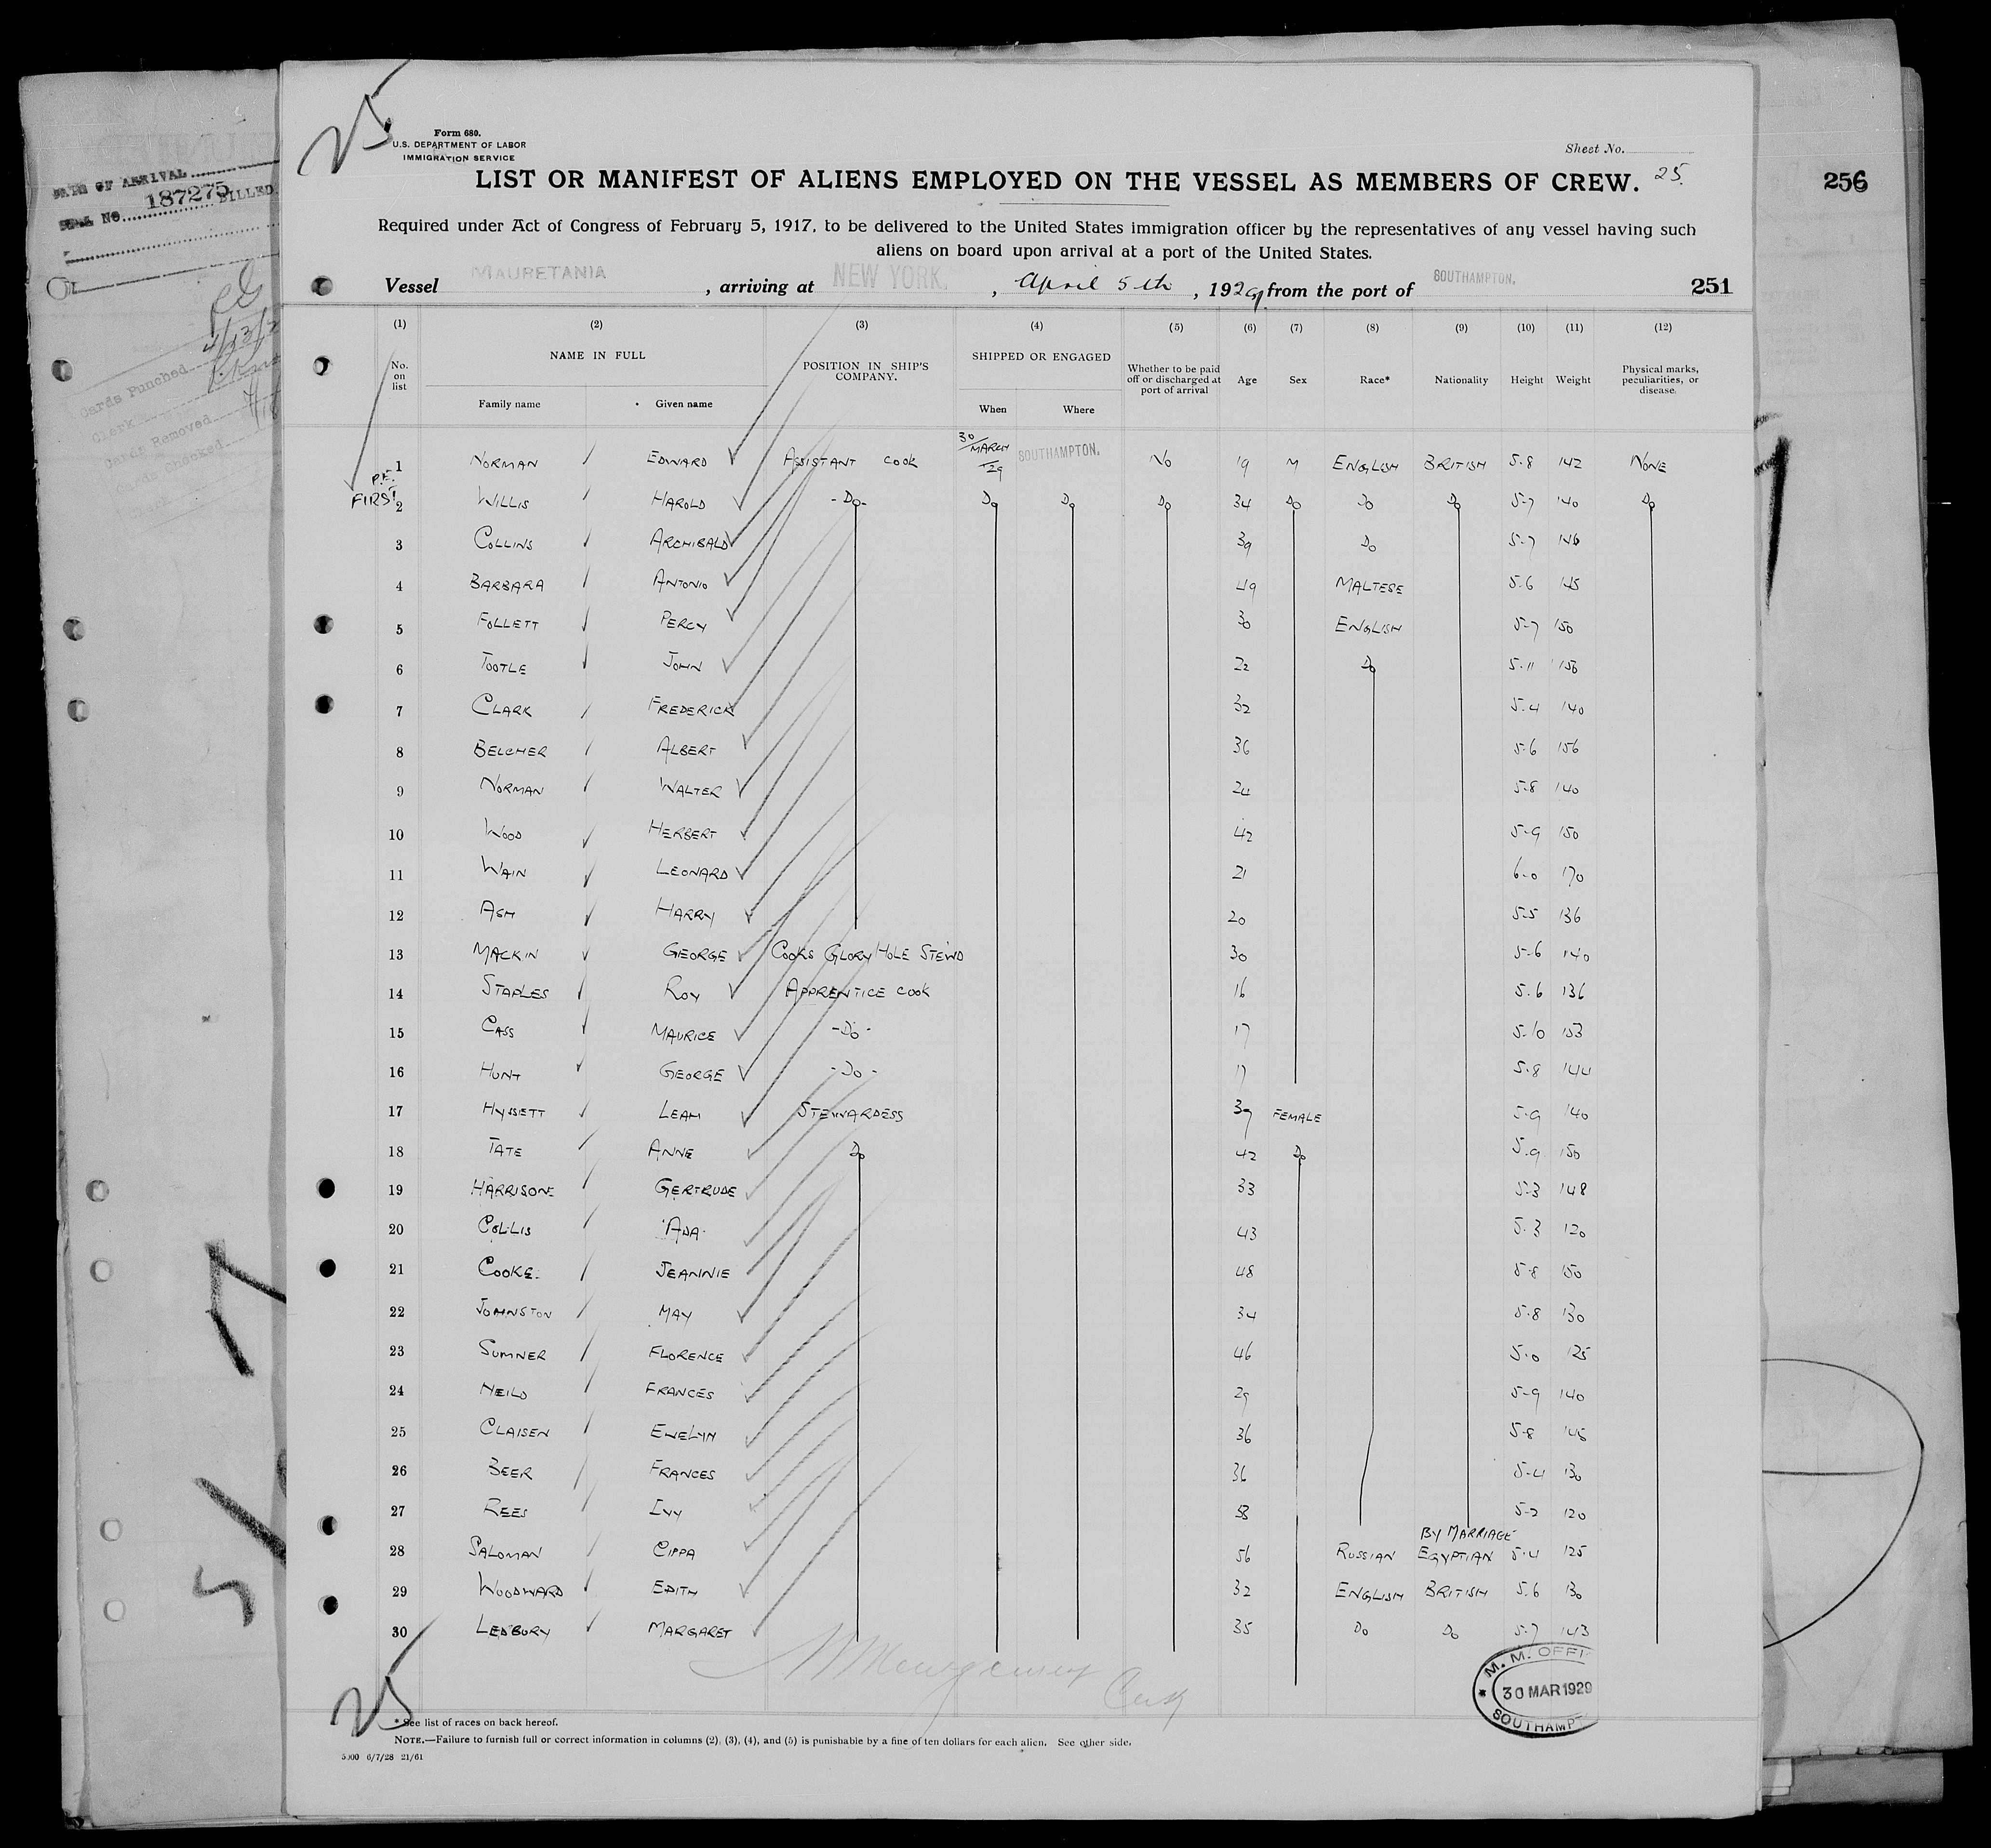 25
Form 680.
U.S. DEPARTMENT OF LABOR
IMMIGRATION SERVICE
Sheet No. 25.
LIST OR MANIFEST OF ALIENS EMPLOYED ON THE VESSEL AS MEMBERS OF CREW.
256
DATE OF ARRIVAL
187275 FILLED
Required under Act of Congress of February 5, 1917, to be delivered to the United States immigration officer by the representatives of any vessel having such
aliens on board upon arrival at a port of the United States.
Vessel MAURETANIA, arriving at NEW YORK, April 5th, 1929, from the port of SOUTHAMPTON. 251
Cards Punched
Clerk
Cards Removed
Checked
(1) (2) (3) (4) (5) (6) (7) (8) (9) (10) (11) (12)
No. on list NAME IN FULL POSITION IN SHIP'S COMPANY. SHIPPED OR ENGAGED Whether to be paid off or discharged at port of arrival Age Sex Race* Nationality Height Weight Physical marks, peculiarities, or disease.
Family name Given name When Where
1 NORMAN EDWARD ASSISTANT COOK 30/MARCH/29 SOUTHAMPTON. NO 19 M ENGLISH BRITISH 5-8 142 NONE
P.E.
FIRST 2 WILLIS HAROLD -Do- Do Do Do 34 Do Do Do 5-7 140 Do
3 COLLINS ARCHIBALD 39 Do 5-7 146
4 BARBARA ANTONIO 49 MALTESE 5-6 145
5 FOLLETT PERCY 30 ENGLISH 5-7 150
6 TOOTLE JOHN 22 Do 5-11 156
7 CLARK FREDERICK 32 5-4 140
8 BELCHER ALBERT 36 5-6 156
9 NORMAN WALTER 24 5-8 140
10 WOOD HERBERT 42 5-9 150
11 WAIN LEONARD 21 6-0 170
12 ASH HARRY 20 5-5 136
13 MACKIN GEORGE COOKS GLORY HOLE STEWD 30 5-6 140
14 STAPLES ROY APPRENTICE COOK 16 5-6 136
15 CASS MAURICE -Do- 17 5-10 153
16 HUNT GEORGE -Do- 17 5-8 144
17 HYSSETT LEAH STEWARDESS 39 FEMALE 5-9 140
18 TATE ANNE Do 42 Do 5-9 150
19 HARRISON GERTRUDE 33 5-3 148
20 COLLIS ADA 43 5-3 120
21 COOKE JEANNIE 48 5-8 150
22 JOHNSTON MAY 34 5-8 130
23 SUMNER FLORENCE 46 5-0 125
24 HEILD FRANCES 29 5-9 140
25 CLAISEN EVELYN 36 5-8 145
26 BEER FRANCES 36 5-4 130
27 REES IVY 5-2 120
28 SALOMAN CIPPA 56 RUSSIAN BY MARRIAGE EGYPTIAN 5-4 125
29 WOODWARD EDITH 32 ENGLISH BRITISH 5-6 130
30 LEDBURY MARGARET 35 Do Do 5-7 143
M. M. OFFI
30 MAR 1929
SOUTHAMPT
25
* See list of races on back hereof.
NOTE.—Failure to furnish full or correct information in columns (2), (3), (4), and (5) is punishable by a fine of ten dollars for each alien. See other side.
5000 6/7/28 21/61